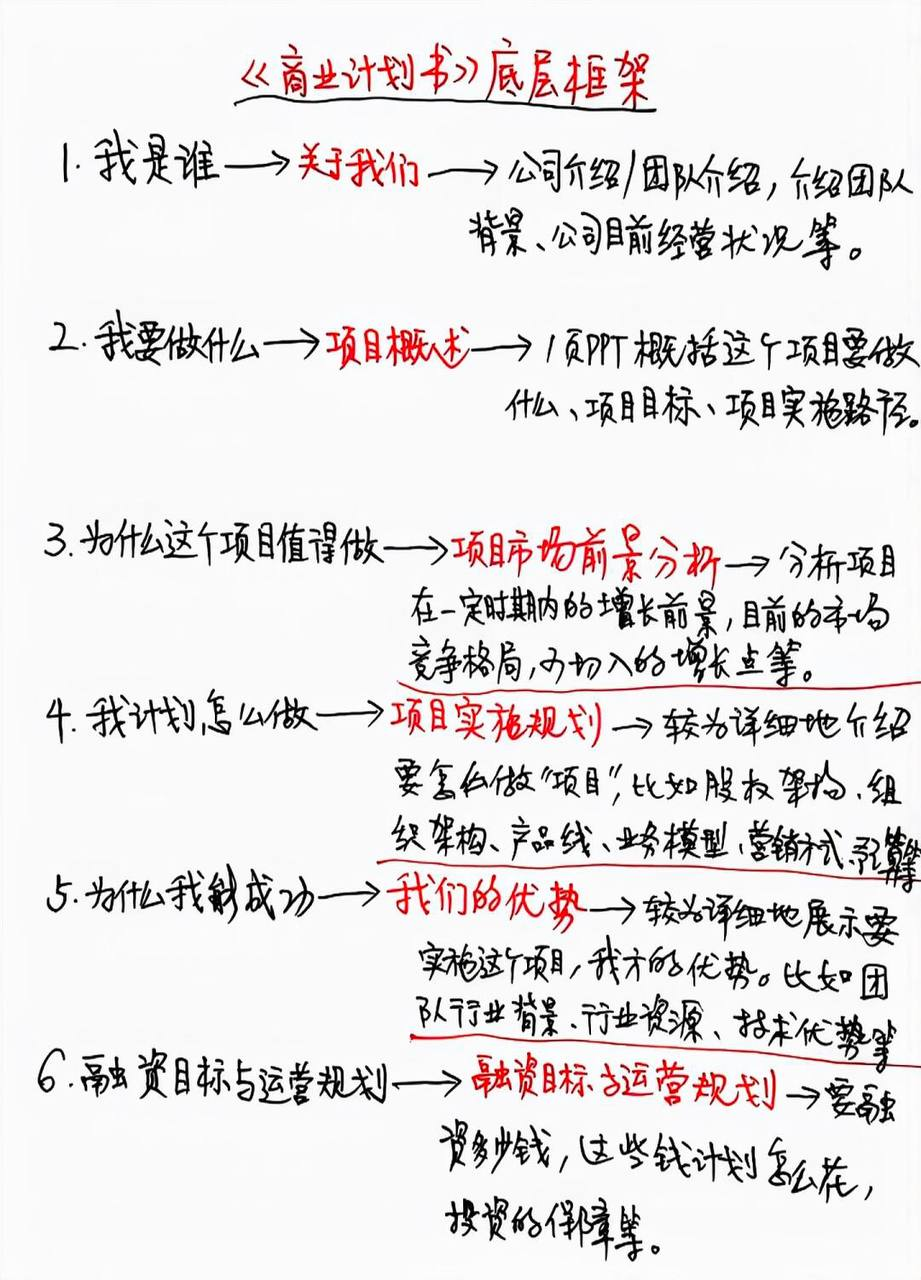 《商业计划书》底层框架
1. 我是谁→关于我们→公司介绍/团队介绍，介绍团队
背景、公司目前经营状况等。
2. 我要做什么→项目概述→1页PPT概括这个项目要做
什么、项目目标、项目实施路径。
3. 为什么这个项目值得做→项目市场前景分析→分析项目
在一定时期内的增长前景，目前的市场
竞争格局，可切入的增长点等。
4. 我计划怎么做→项目实施规划→较为详细地介绍
要怎么做“项目”，比如股权架构、组
织架构、产品线、业务模型、营销方式、预算等
5. 为什么我能成功→我们的优势→较为详细地展示要
实施这个项目，我方的优势。比如团
队行业背景、行业资源、技术优势等
6. 融资目标与运营规划→融资目标与运营规划→要融
资多少钱，这些钱计划怎么花，
投资的保障等。